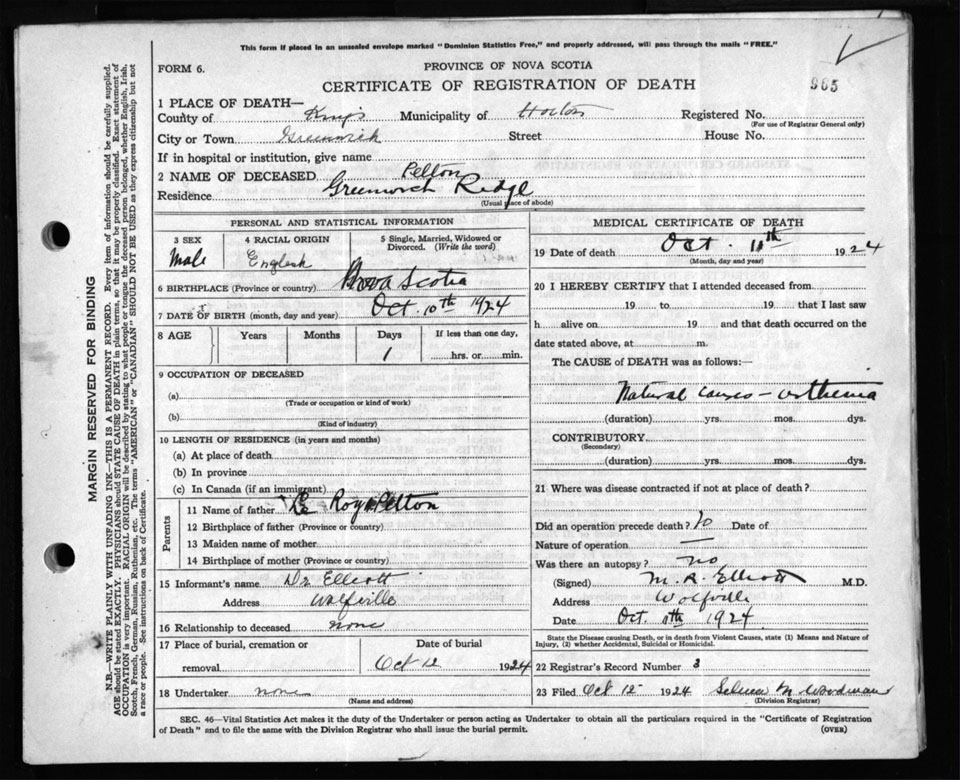 This form if placed in an unsealed envelope marked "Dominion Statistics Free," and properly addressed, will pass through the mails "FREE."
FORM 6.
PROVINCE OF NOVA SCOTIA
CERTIFICATE OF REGISTRATION OF DEATH
965
1 PLACE OF DEATH—
County of Kings Municipality of Horton Registered No.
(For use of Registrar General only)
City or Town Greenwich Street House No.
If in hospital or institution, give name
2 NAME OF DECEASED Pelton
Residence Greenwich Ridge
(Usual place of abode)
MARGIN RESERVED FOR BINDING
N.B.—WRITE PLAINLY WITH UNFADING INK—THIS IS A PERMANENT RECORD. Every item of information should be carefully supplied.
AGE should be stated EXACTLY. PHYSICIANS should STATE CAUSE OF DEATH in plain terms, so that it may be properly classified. Exact statement of
OCCUPATION is very important. RACIAL ORIGIN will be described by stating to what people or tongue the deceased person belonged, whether English, Irish,
Scotch, French, German, Russian, Ruthenian, etc. The terms "AMERICAN" or "CANADIAN" SHOULD NOT BE USED as they express citizenship but not
a race or people. See instructions on back of Certificate.
PERSONAL AND STATISTICAL INFORMATION
3 SEX
Male
4 RACIAL ORIGIN
English
5 Single, Married, Widowed or
Divorced. (Write the word)
6 BIRTHPLACE (Province or country) Nova Scotia
7 DATE OF BIRTH (month, day and year) Oct. 10th 1924
8 AGE Years Months Days If less than one day,
1 hrs. or min.
9 OCCUPATION OF DECEASED
(a)
(Trade or occupation or kind of work)
(b)
(Kind of industry)
10 LENGTH OF RESIDENCE (in years and months)
(a) At place of death
(b) In province
(c) In Canada (if an immigrant)
Parents
11 Name of father Le Roy Pelton
12 Birthplace of father (Province or country)
13 Maiden name of mother
14 Birthplace of mother (Province or country)
15 Informant's name Dr Elliott
Address Wolfville
16 Relationship to deceased none
17 Place of burial, cremation or
removal
Date of burial
Oct 12 1924
18 Undertaker none
(Name and address)
MEDICAL CERTIFICATE OF DEATH
19 Date of death Oct. 11th 1924
(Month, day and year)
20 I HEREBY CERTIFY that I attended deceased from
19 to 19 that I last saw
h alive on 19 and that death occurred on the
date stated above, at m.
The CAUSE of DEATH was as follows:—
Natural causes —
(duration) yrs. mos. dys.
CONTRIBUTORY
(Secondary)
(duration) yrs. mos. dys.
21 Where was disease contracted if not at place of death?
Did an operation precede death? No Date of
Nature of operation —
Was there an autopsy? no
(Signed) M. R. Elliott M.D.
Address Wolfville
Date Oct. 11th 1924
State the Disease causing Death, or in death from Violent Causes, state (1) Means and Nature of
Injury, (2) whether Accidental, Suicidal or Homicidal.
22 Registrar's Record Number 3
23 Filed Oct 12 1924 Woodman
(Division Registrar)
SEC. 46—Vital Statistics Act makes it the duty of the Undertaker or person acting as Undertaker to obtain all the particulars required in the "Certificate of Registration
of Death" and to file the same with the Division Registrar who shall issue the burial permit.
(OVER)